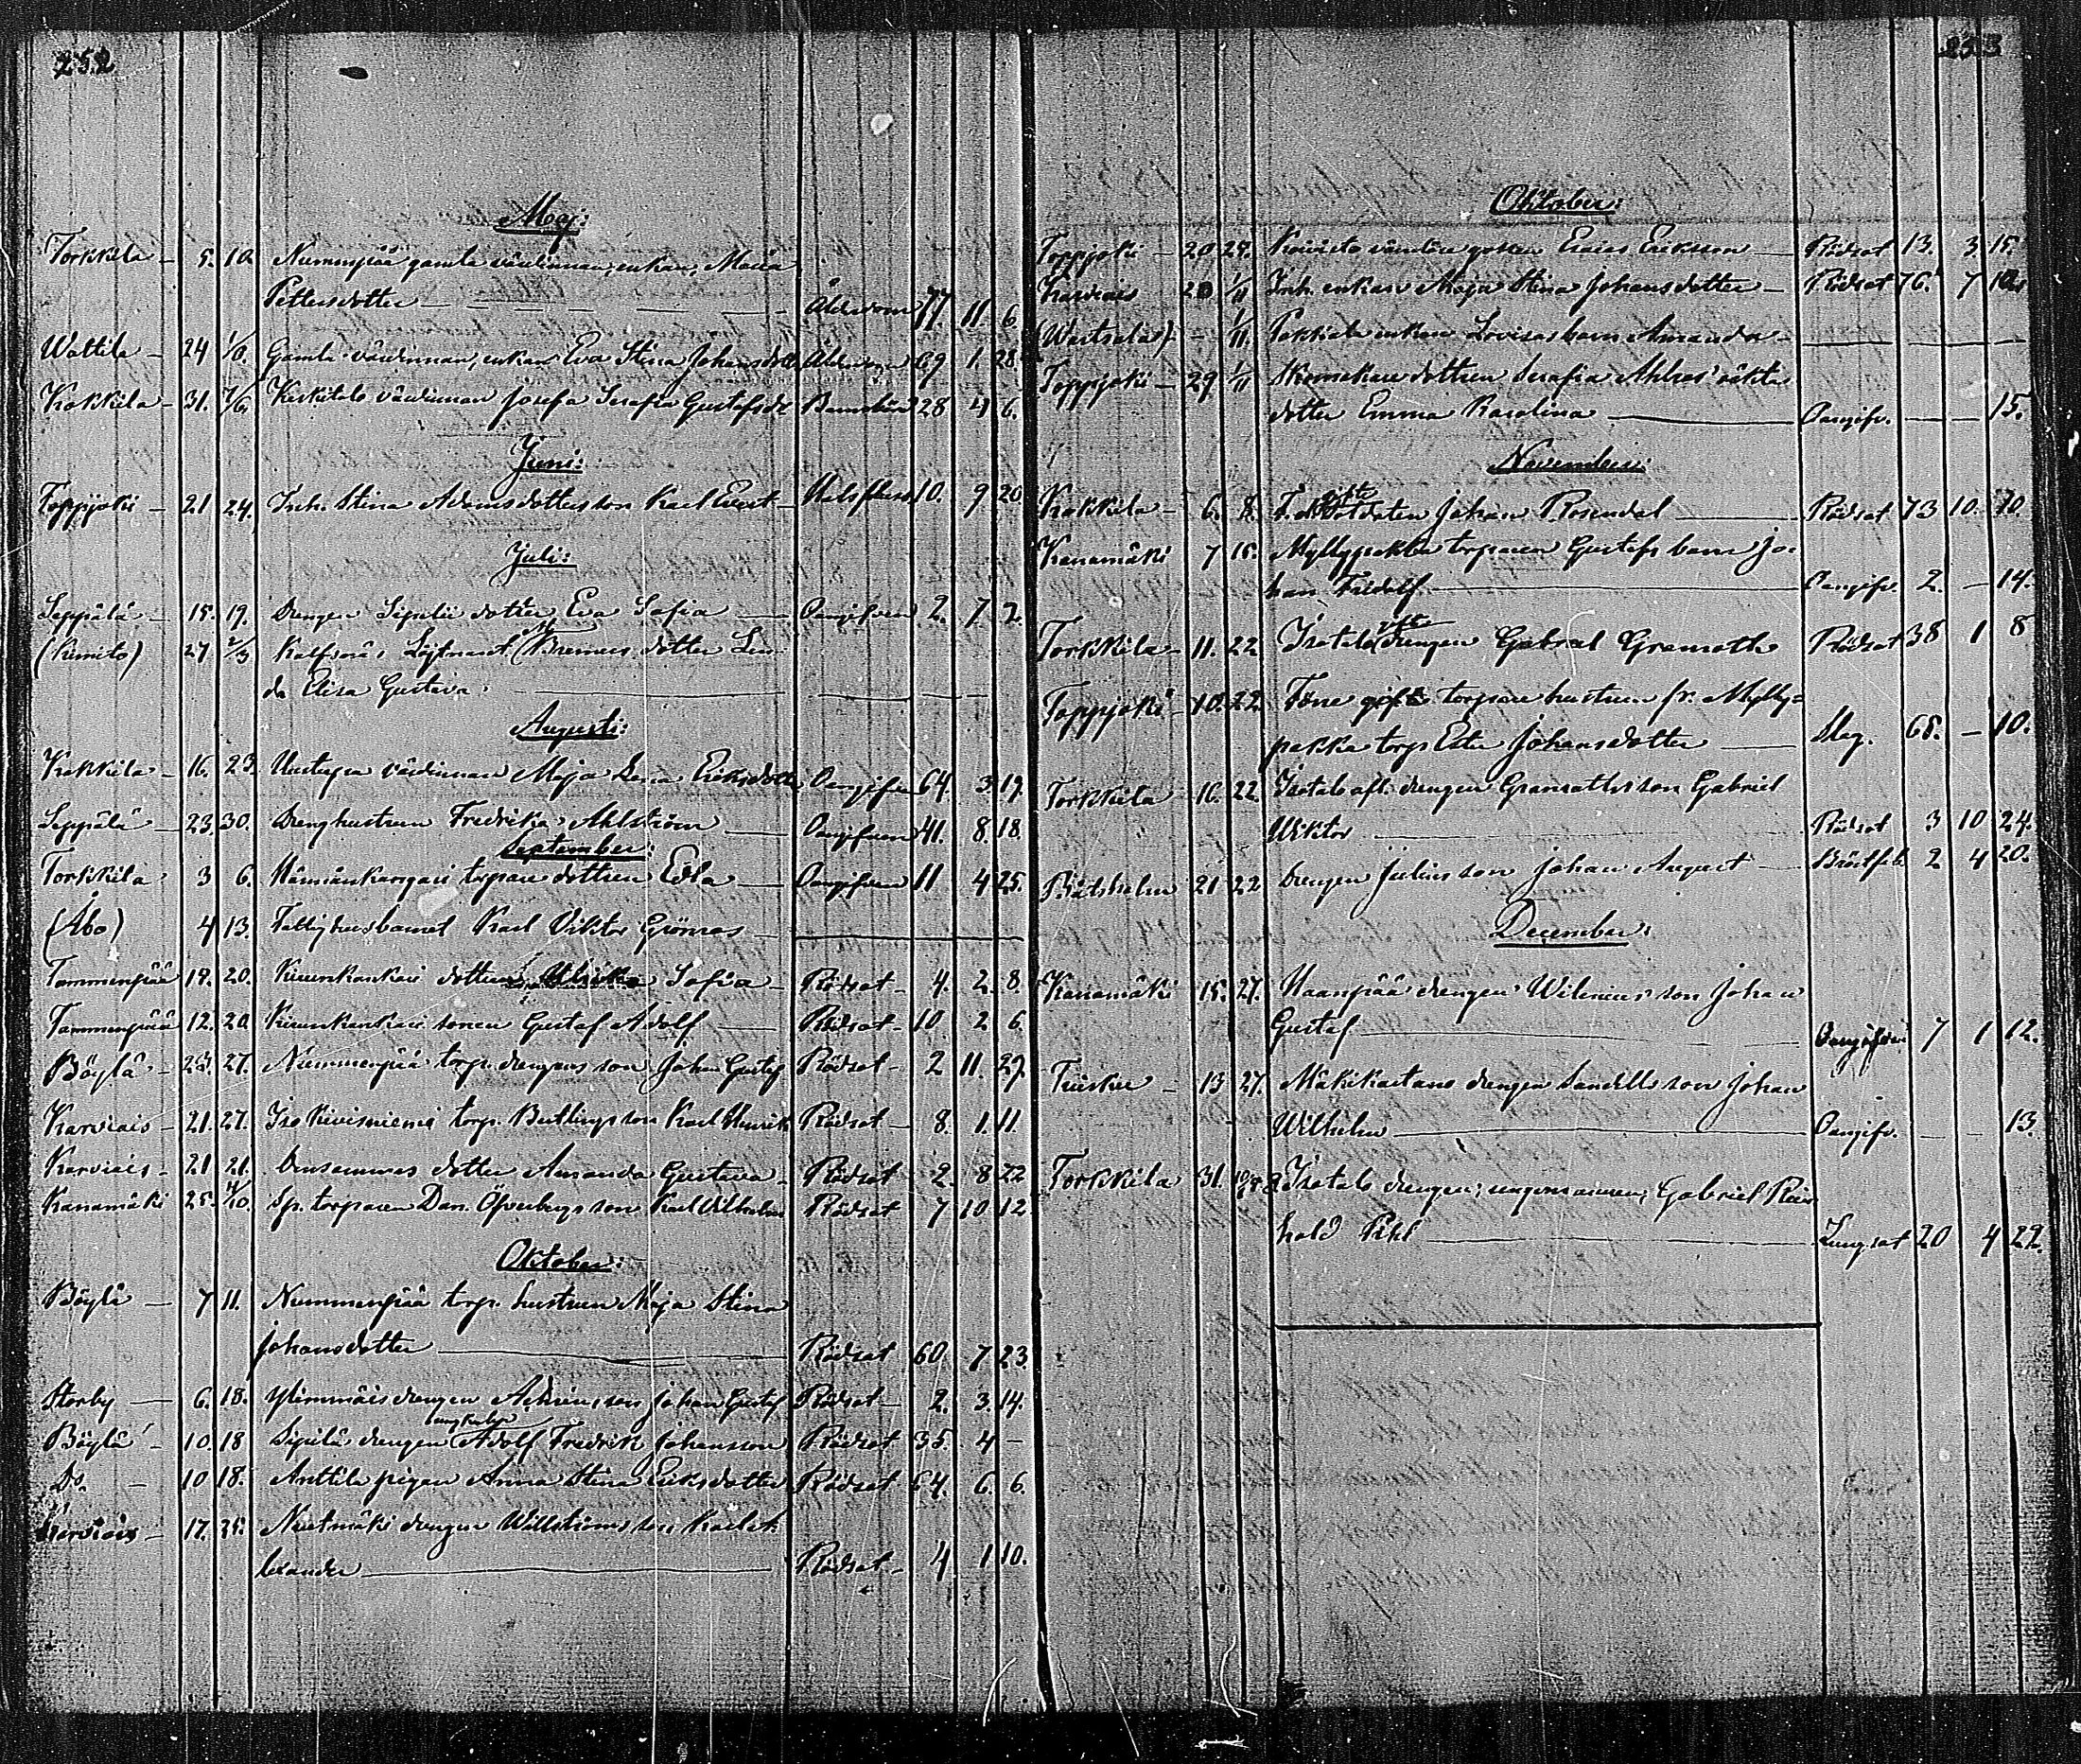 252
Maj:
Torkkila — 5. 10. Nummenpää gamla värdinnan, enkan, Maria
Pettersdotter — Ålderdom 77. 11 6.
Wattila — 24 1/6. Gamla värdinnan, enkan Eva Stina Johansdott. Ålderdom 69 1. 28.
Kokkila — 31. 7/6. Keskitalo värdinnan Josefa Serafia Gustafsdr Barnsbörd 28 4 6.
Juni:
Toppjoki — 21 24. Inh. Stina Adamsdotters son Karl Evert — Halsfluss 10. 9 20
Juli:
Seppälä — 15. 19. Drengen Sipilä dotter Eva Sofia — Oangifven 2. 7 2
(Kimito) 27 Kalfsnäs Löjtnant Bremers dotter Lin-
da Elisa Gustava.
Augusti:
Kokkila — 16. 23. värdinnan Maja Lena Eriksdotter Oangifven 64. 3 19.
Seppälä — 23. 30. Drenghustrun Fredrika Ahlström — Oangifven 41. 8. 18
September:
Torkkila 3 6. torpare dottren Edla — Oangifven 11 4 25.
(Åbo) 4 13. Fattighusbarnet Karl Viktor Grönros
Tammenpää 19. 20. dottren Ulrika Sofia — Rödsot — 4. 2. 8.
Tammenpää 12. 20. sonen Gustaf Adolf — Rödsot — 10 2 6.
Böylä — 23. 27. Nummenpää torp. drengens son Johan Gustaf Rödsot — 2 11. 27.
Karviais — 21. 27. Iso Kivisniemi torp. son Karl Henrik Rödsot — 8. 1. 11
Karviais — 21 21. Densammas dotter Amanda Gustava — Rödsot — 2. 8 22
Kanamäki 25. 4/10. Sp. torparen Dan. Öfverbergs son Karl Vilhelm Rödsot 7 10 12
Oktober:
Böylä — 7 11. Nummenpää torp. hustrun Maja Stina
Johansdotter — Rödsot 60 7 23.
Storby — 6. 18. Ylimmäis drengen son Johan Gustaf Rödsot — 2. 3. 14.
Böylä — 10. 18 Sipilä drengen ungkarlen Adolf Fredrik Johansson Rödsot 35. 4 —
Do — 10 18. Anttila pigan Anna Stina Eriksdotter Rödsot 64. 6. 6.
Karviais — 17. 25. drengen Wallströms son Karl A-
lexander — Rödsot — 4 1 10.
253
Oktober:
Toppjoki — 20 29. Koivisto värdens gossen Erikson — Rödsot 13. 3 15.
Karviais 20 1/11 Inh. enkan Maja Stina Johansdotter — Rödsot 76. 7 10.
(Wartsala) — 1/11. Pekkala enkan Lovisas barn Amanda
Toppjoki — 29 1/11 Skomakare dottren Serafia Ahlros' oäkta
dotter Emma Karolina — Oangifv. — — 15.
November:
Kokkila — 6. 8. F.d. gifte Soldaten Johan Rosendal — Rödsot 73 10. 20
Kanamäki 7 15. Myllypakka torparen Gustafs barn Jo-
han Fridolf — Oangifv. 2. — 14.
Torkkila — 11. 22 Isotalo gifte drengen Gabriel Gramoth Rödsot 38 1 8
Toppjoki — 10. 22 Förre gifta torpare hustrun fr. Mylly-
pakka torp Ester Johansdotter — Slag. 68. — 10.
Torkkila 16. 22. Isotalo afl. drengen Gramoths son Gabriel
Wiktor — Rödsot 3 10 24.
Båtsholm 21 22 Drengen Julius son Johan August — Bröstfeb. 2 4 20.
December:
Kanamäki 15. 27. Haanpää drengen Wilenius son Johan
Gustaf — Oangifven 7 1 12.
Tuisku — 13 27. drengen Sandells son Johan
Wilhelm — Oangifv. — — 13.
Torkkila 31. Isotalo drengen, ungersvennen, Gabriel Rein-
hold Pihl — Lungsot 20 4 22.